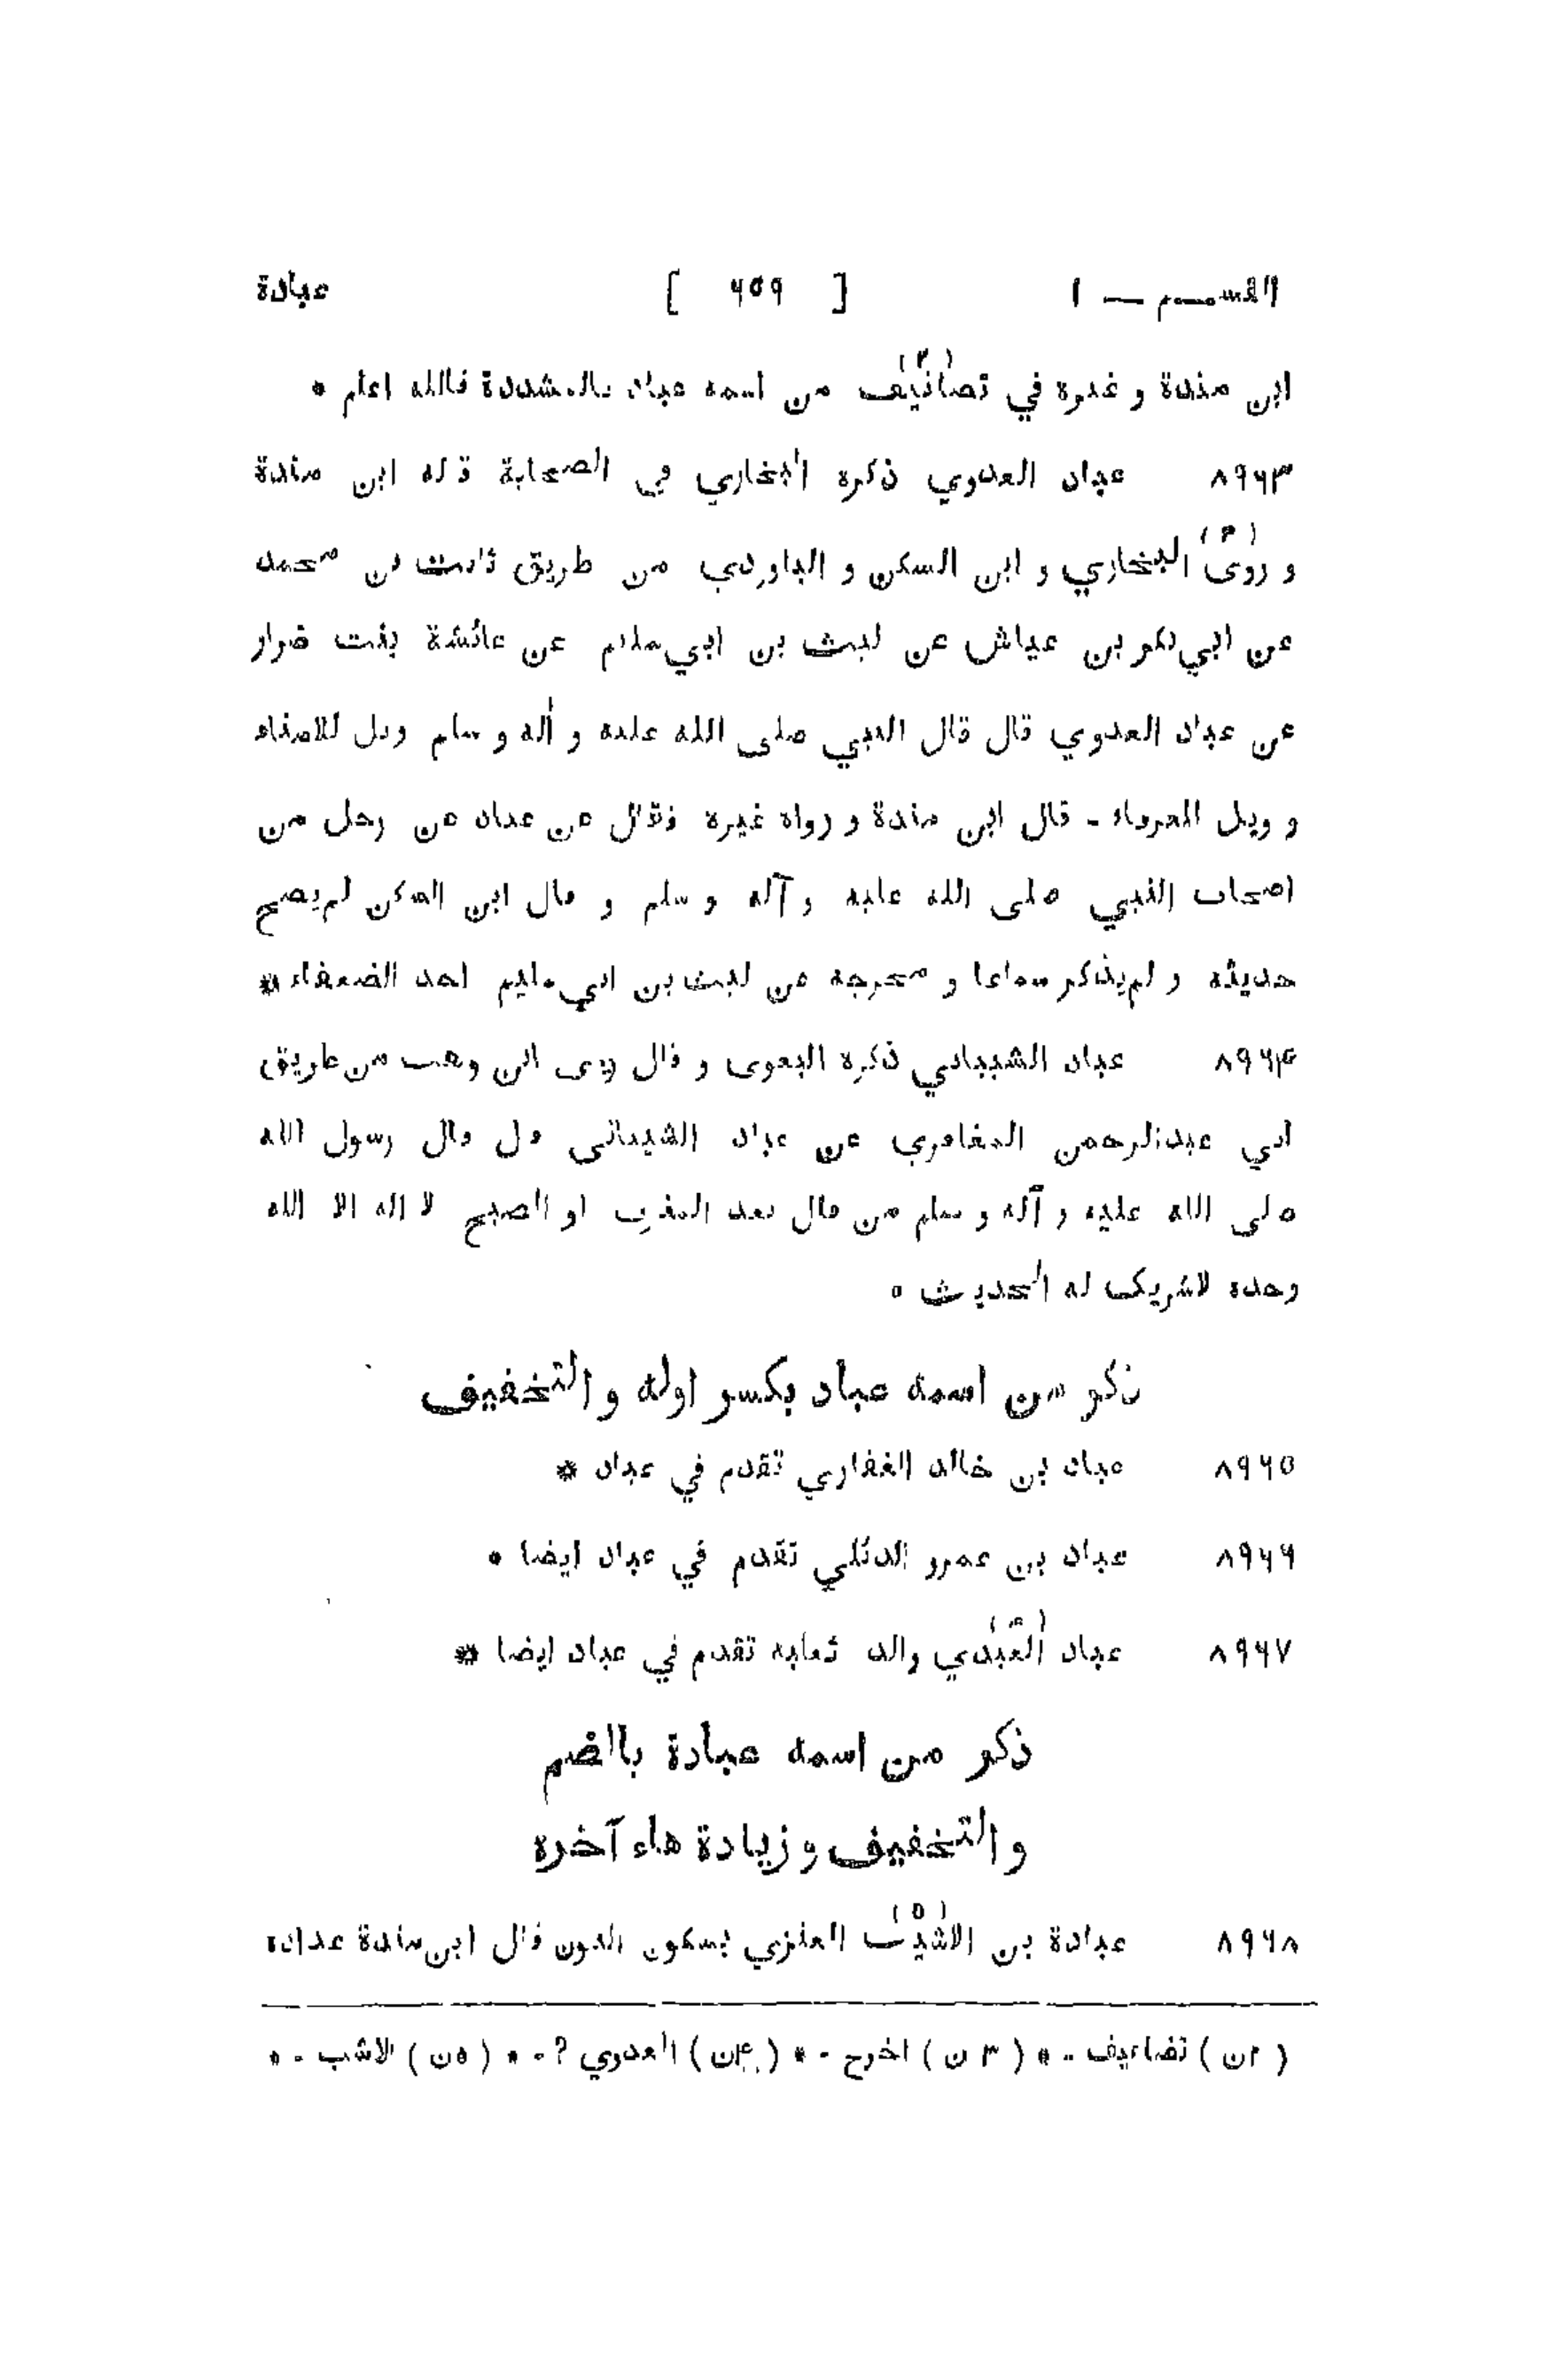 القسم — ١ [ ٦٥٩ ] عبادة
ابن مندة و غيره في تصانيف (٢) من اسمه عباد بالمشددة فالله اعلم *
٨٩٦٣ عباد العدوي ذكره البخاري في الصحابة قاله ابن مندة
و روى (٣) البخاري و ابن السكن و الباوردي من طريق ثابت بن محمد
عن ابي بكر بن عياش عن ليث بن ابي سليم عن عائشة بنت ضرار
عن عباد العدوي قال قال النبي صلى الله عليه و آله و سلم ويل للامناء
و ويل للعرفاء - قال ابن مندة و رواه غيره فقال عن عباد عن رجل من
اصحاب النبي صلى الله عليه و آله و سلم و قال ابن السكن لم يصح
حديثه و لم يذكر سماعا و مخرجه عن ليث بن ابي سليم احد الضعفاء *
٨٩٦٤ عباد الشيباني ذكره البغوى و قال روى ابن وهب من طريق
ابي عبدالرحمن المعافري عن عباد الشيبانى قال قال رسول الله
صلى الله عليه و آله و سلم من قال بعد المغرب او الصبح لا اله الا الله
وحده لاشريك له الحديث *
ذكر من اسمه عباد بكسر اوله و التخفيف
٨٩٦٥ عباد بن خالد الغفاري تقدم في عباد *
٨٩٦٦ عباد بن عمرو الدئلي تقدم في عباد ايضا *
٨٩٦٧ عباد العبدي (٤) والد ثعلبه تقدم في عباد ايضا *
ذكر من اسمه عبادة بالضم
و التخفيف و زيادة هاء آخره
٨٩٦٨ عبادة بن الاشيب (٥) العنزي بسكون النون قال ابن مندة عداده
( ٢ن ) تضاعيف - * ( ٣ ن ) اخرج - * ( ٤ن ) العدوي ? - * ( ٥ن ) الاشب - *